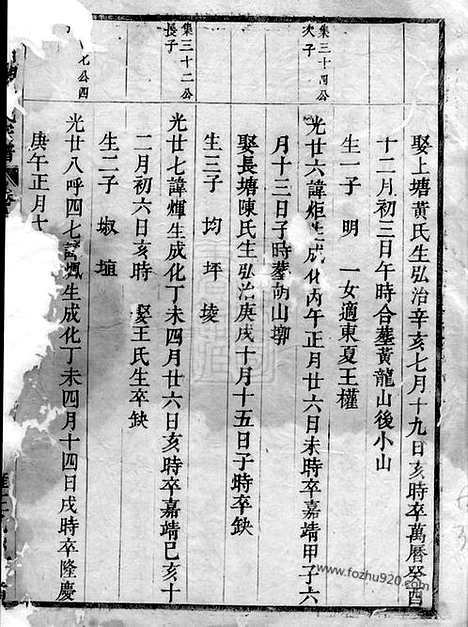 娶上塘黃氏生弘治辛亥七月十九日亥時卒萬曆癸酉
十二月初三日午時合塟黃龍山後小山
生一子 明 一女適東夏王權
集三十四公
次子
光廿六諱炬生成化丙午正月廿六日未時卒嘉靖甲子六
月十三日子時塟胡山塝
娶長塘陳氏生弘治庚戌十月十五日子時卒缺
生三子 均 坪 堎
集三十二公
長子
光廿七諱煇生成化丁未四月廿六日亥時卒嘉靖己亥十
二月初六日亥時 娶王氏生卒缺
生二子 埱 埴
七公四
光廿八呼四七諱 生成化丁未四月十四日戌時卒隆慶
庚午正月十
www.fozhu920.com